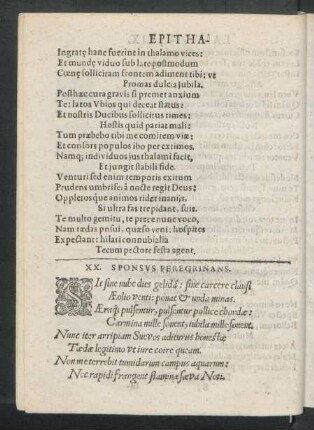 EPITHA-
Ingratę hanc fuerint in thalamo vices:
Et mundę viduo sub lare postmodum
Cœnę sollicitam frontem adiment tibi: vt
Promas dulcia Iubila.
Posthæc cura grauis si premet anxium
Te: latos Vbios qui deceat status:
Et nostris Ducibus sollicitus times:
Hostis quid pariat mali:
Tum præbebo tibi me comitem viæ:
Et consors populos ibo per eximos.
Namq; individuos jus thalami facit,
Et jungit stabili fide.
Venturi sed enim temporis exitum
Prudens umbriferâ nocte tegit Deus:
Oppletosque animos ridet inanijs.
Si ultra fas trepidant, suis.
Te multo gemitu, te prece nunc voco,
Nam tædas posui, quæso veni: hospites
Expectant: hilari connubialia
Tecum pectore festa agent.
XX. SPONSVS PEREGRINANS.
SIt sine nube dies gelidâ: siue carcere clausi
Æolio venti: ponat & unda minas.
Æraq; pulsentur, pulsentur pollice chordæ:
Carmina mille sonent, iubila mille sonent.
Nunc iter arripiam Suevos aditurus honestæ
Tædæ legitimo vt iure coire queam.
Non me terrebit tumidarum campus aquarum:
Nec rapidi frangent flamina sæva Noti.